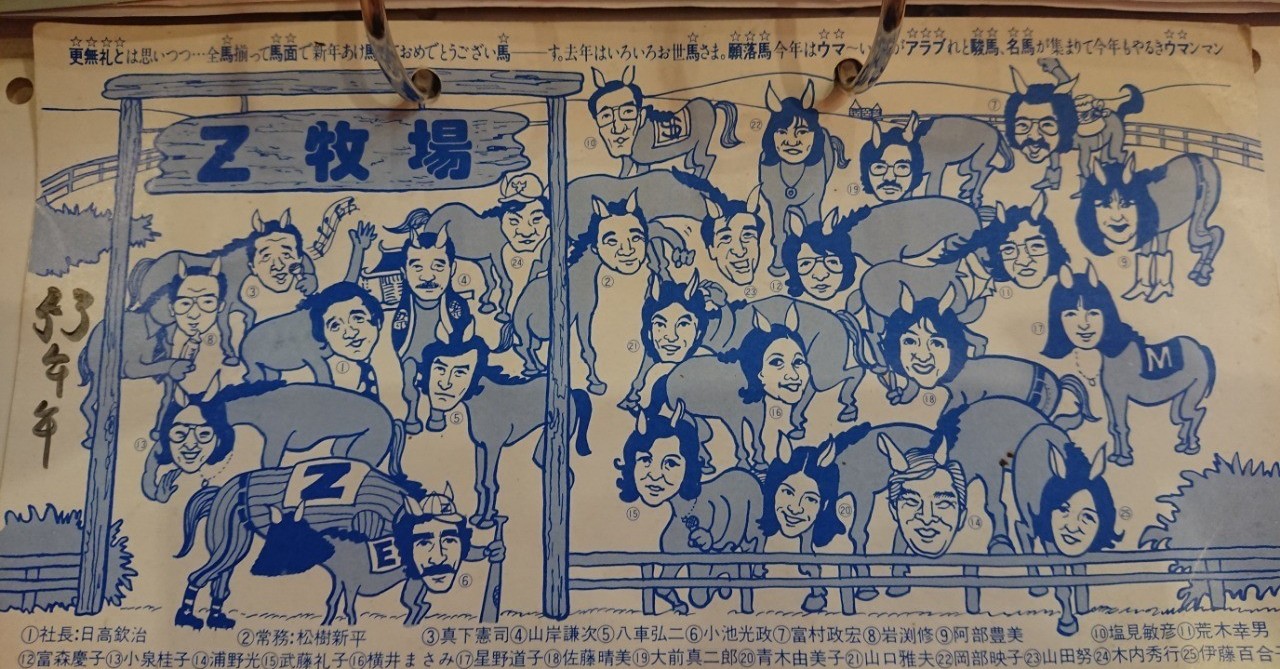 更無礼とは思いつつ…全馬揃って馬面で新年あけ馬 ておめでとうござい馬――す。去年はいろいろお世馬さま。願落馬今年はウマ〜い がアラブれと駿馬、名馬が集まりて今年もやるきウマンマン
Z牧場
53午年
$
⑩
㉒
⑦
⑲
㉔
③
④
②
㉓
⑫
⑪
⑨
⑧
①
㉑
⑰
M
⑤
⑯
⑱
⑬
Z
⑮
⑳
⑭
㉕
Z
E
⑥
①社長:日高欽治 ②常務:松樹新平 ③真下憲司④山岸謙次⑤八車弘二⑥小池光政⑦富村政宏⑧岩渕修⑨阿部豊美 ⑩塩見敏彦⑪荒木幸男
⑫富森慶子⑬小泉桂子⑭浦野光⑮武藤礼子⑯横井まさみ⑰星野道子⑱佐藤晴美⑲大前真二郎⑳青木由美子㉑山口雅夫㉒岡部映子㉓山田努㉔木内秀行㉕伊藤百合子